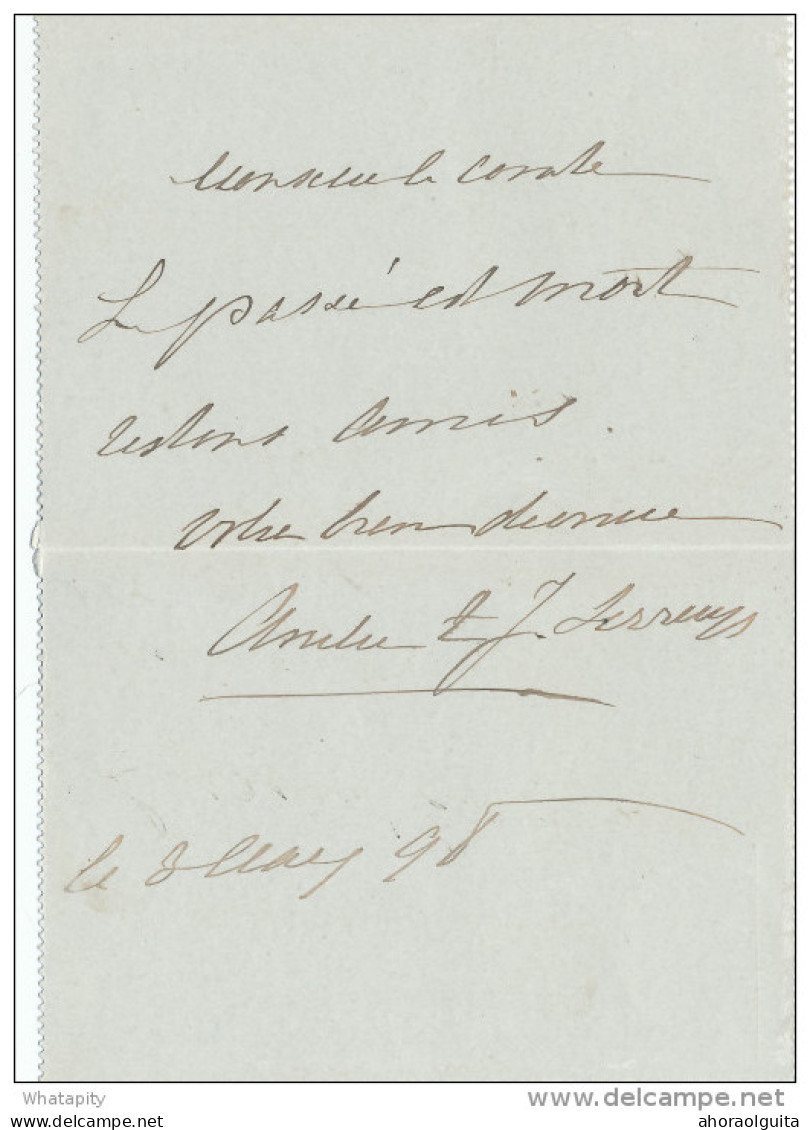 Monsieur le comte
Le passé est mort
restons amis.
votre bien dévouée
Amélie & J.
le 3 Mars 98
Whatapity
delcampe.net
ahoraolguita